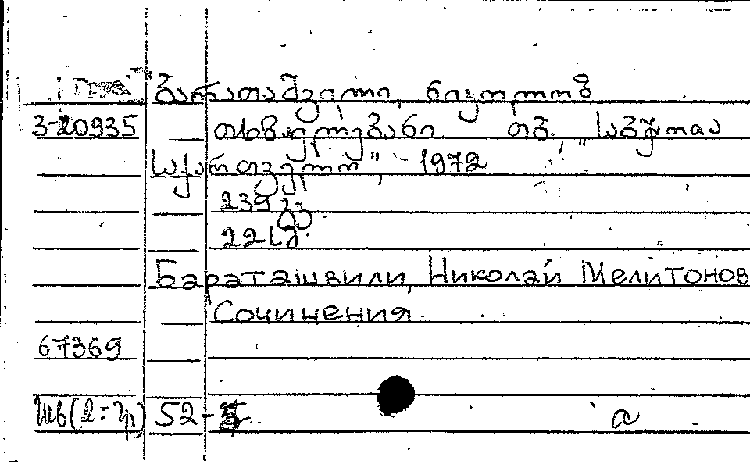 ბარათაშვილი, ნიკოლოზ
3-20935 თხზულებანი. თბ. „საბჭოთა
საქართველო", 1972
239 გვ.
22 სმ.
Бараташвили, Николай Мелитонов
Сочинения.
67369
52-
а